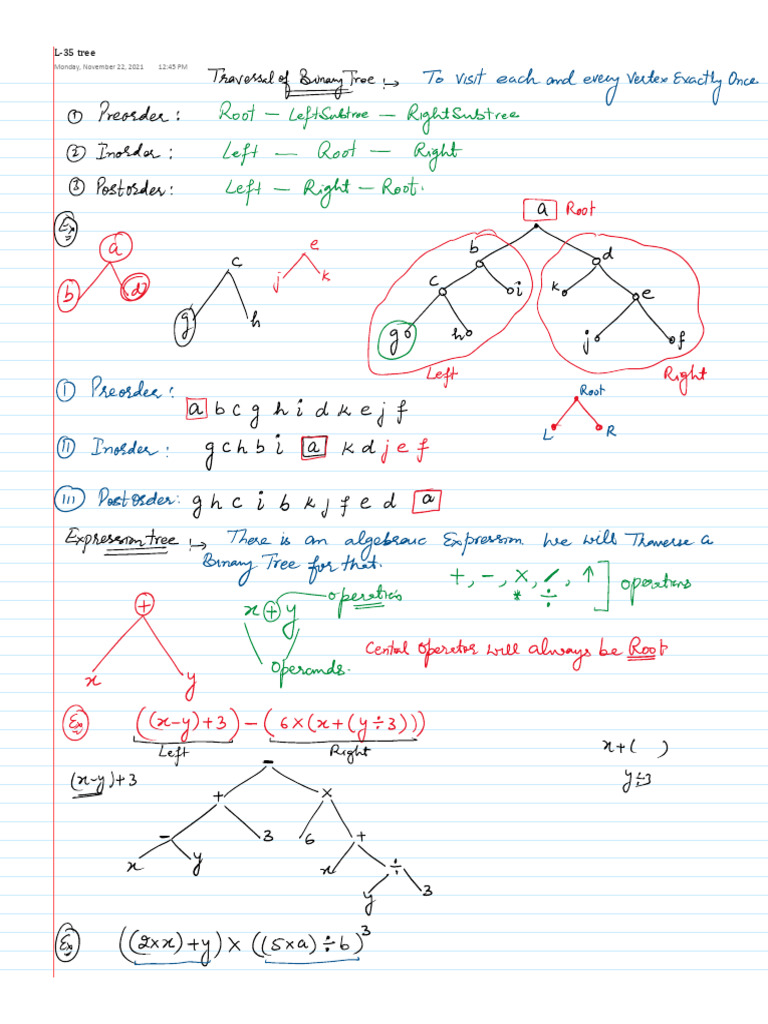 L-35 tree
Monday, November 22, 2021 12:45 PM
Traversal of Binary Tree :→ To visit each and every Vertex Exactly Once
① Preorder : Root — Left Subtree — Right Subtree
② Inorder : Left — Root — Right
③ Postorder : Left — Right — Root.
Ex
a
b d
c
g h
e
j k
a Root
b d
c i k e
g h j f
Left Right
Ⓘ Preorder :
a b c g h i d k e j f
Root
L R
Ⓘⓘ Inorder : g c h b i a k d j e f
III Postorder : g h c i b k j f e d a
Expression tree :→ There is an algebraic Expression we will Traverse a
Binary Tree for that.
+, -, ×, /, ↑ ] operators
* ÷
+
x y
x + y operators
Operands.
Cental operator will always be Root
Ex ((x-y)+3) - (6×(x+(y÷3)))
Left Right
x+( )
y÷3
(x-y)+3
-
+ ×
- 3 6 +
x y x ÷
y 3
Ex ((2×x)+y) × ((5×a)÷b)³